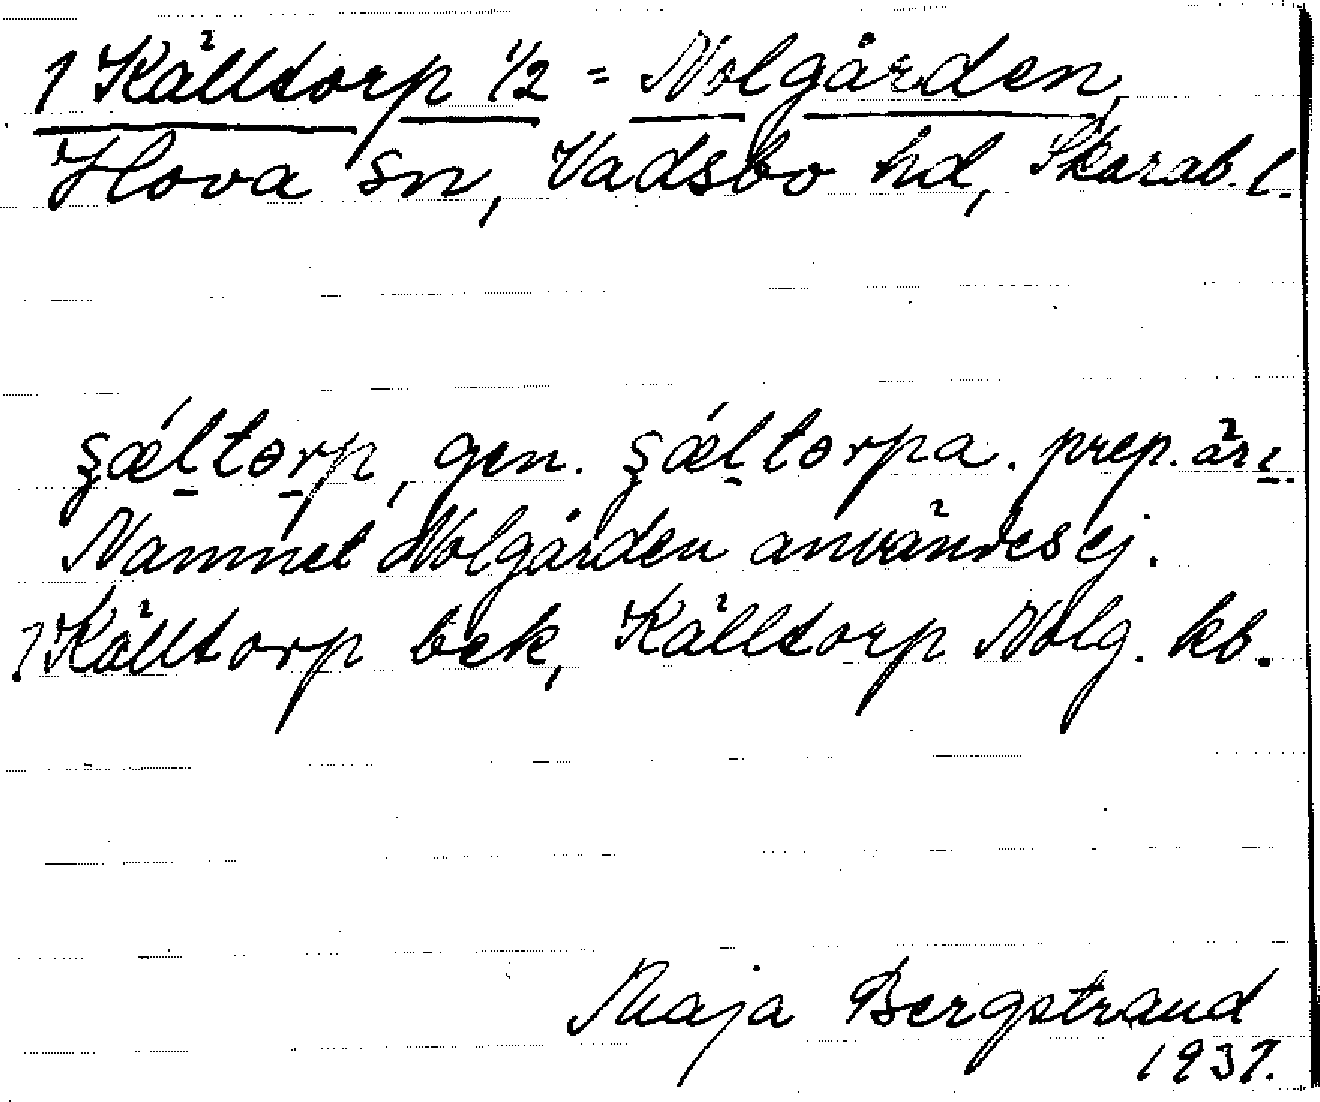 1 Källtorp 1/2 = Nolgården
Hova sn, Vadsbo hd, Skarab. l.
şǽltorp, gen. şǽltorpa. prep. äri
Namnet Nolgården användes ej.
1 Källtorp bek, Källtorp Nolg. kb.
Maja Bergstrand
1937.